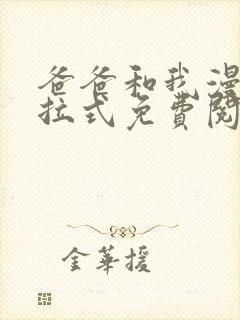 爸爸和我漫
拉式免費閱
金華援